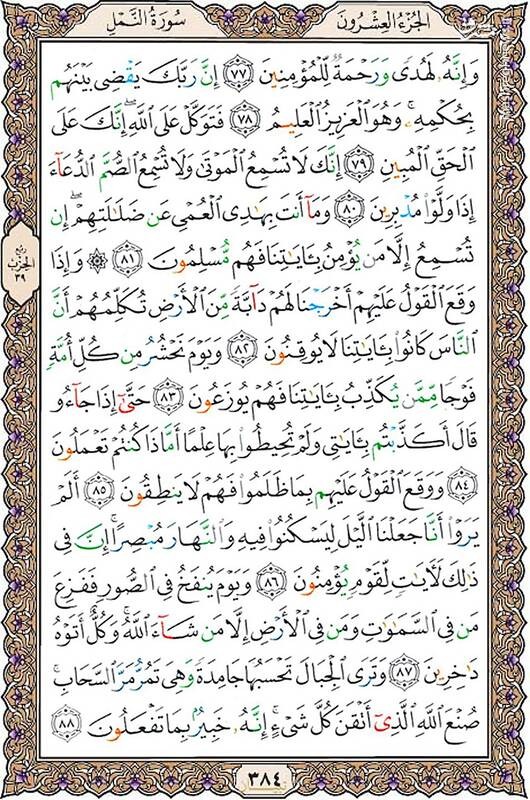 الجزء العشرون
سورة النمل
وَإِنَّهُۥ لَهُدًى وَرَحْمَةٌ لِّلْمُؤْمِنِينَ ﴿٧٧﴾ إِنَّ رَبَّكَ يَقْضِى بَيْنَهُم
بِحُكْمِهِۦ ۚ وَهُوَ الْعَزِيزُ الْعَلِيمُ ﴿٧٨﴾ فَتَوَكَّلْ عَلَى اللَّهِ ۖ إِنَّكَ عَلَى
الْحَقِّ الْمُبِينِ ﴿٧٩﴾ إِنَّكَ لَا تُسْمِعُ الْمَوْتَىٰ وَلَا تُسْمِعُ الصُّمَّ الدُّعَآءَ
إِذَا وَلَّوْا۟ مُدْبِرِينَ ﴿٨٠﴾ وَمَآ أَنتَ بِهَٰدِى الْعُمْىِ عَن ضَلَٰلَتِهِمْ ۖ إِن
تُسْمِعُ إِلَّا مَن يُؤْمِنُ بِـَٔايَٰتِنَا فَهُم مُّسْلِمُونَ ﴿٨١﴾ ۞ وَإِذَا
وَقَعَ الْقَوْلُ عَلَيْهِمْ أَخْرَجْنَا لَهُمْ دَآبَّةً مِّنَ الْأَرْضِ تُكَلِّمُهُمْ أَنَّ
النَّاسَ كَانُوا۟ بِـَٔايَٰتِنَا لَا يُوقِنُونَ ﴿٨٢﴾ وَيَوْمَ نَحْشُرُ مِن كُلِّ أُمَّةٍ
فَوْجًا مِّمَّن يُكَذِّبُ بِـَٔايَٰتِنَا فَهُمْ يُوزَعُونَ ﴿٨٣﴾ حَتَّىٰٓ إِذَا جَآءُو
قَالَ أَكَذَّبْتُم بِـَٔايَٰتِى وَلَمْ تُحِيطُوا۟ بِهَا عِلْمًا أَمَّاذَا كُنتُمْ تَعْمَلُونَ
﴿٨٤﴾ وَوَقَعَ الْقَوْلُ عَلَيْهِم بِمَا ظَلَمُوا۟ فَهُمْ لَا يَنطِقُونَ ﴿٨٥﴾ أَلَمْ
يَرَوْا۟ أَنَّا جَعَلْنَا الَّيْلَ لِيَسْكُنُوا۟ فِيهِ وَالنَّهَارَ مُبْصِرًا ۚ إِنَّ فِى
ذَٰلِكَ لَـَٔايَٰتٍ لِّقَوْمٍ يُؤْمِنُونَ ﴿٨٦﴾ وَيَوْمَ يُنفَخُ فِى الصُّورِ فَفَزِعَ
مَن فِى السَّمَٰوَٰتِ وَمَن فِى الْأَرْضِ إِلَّا مَن شَآءَ اللَّهُ ۚ وَكُلٌّ أَتَوْهُ
دَٰخِرِينَ ﴿٨٧﴾ وَتَرَى الْجِبَالَ تَحْسَبُهَا جَامِدَةً وَهِىَ تَمُرُّ مَرَّ السَّحَابِ ۚ
صُنْعَ اللَّهِ الَّذِىٓ أَتْقَنَ كُلَّ شَىْءٍ ۚ إِنَّهُۥ خَبِيرٌۢ بِمَا تَفْعَلُونَ ﴿٨٨﴾
ربع
الحزب
٣٩
٣٨٤